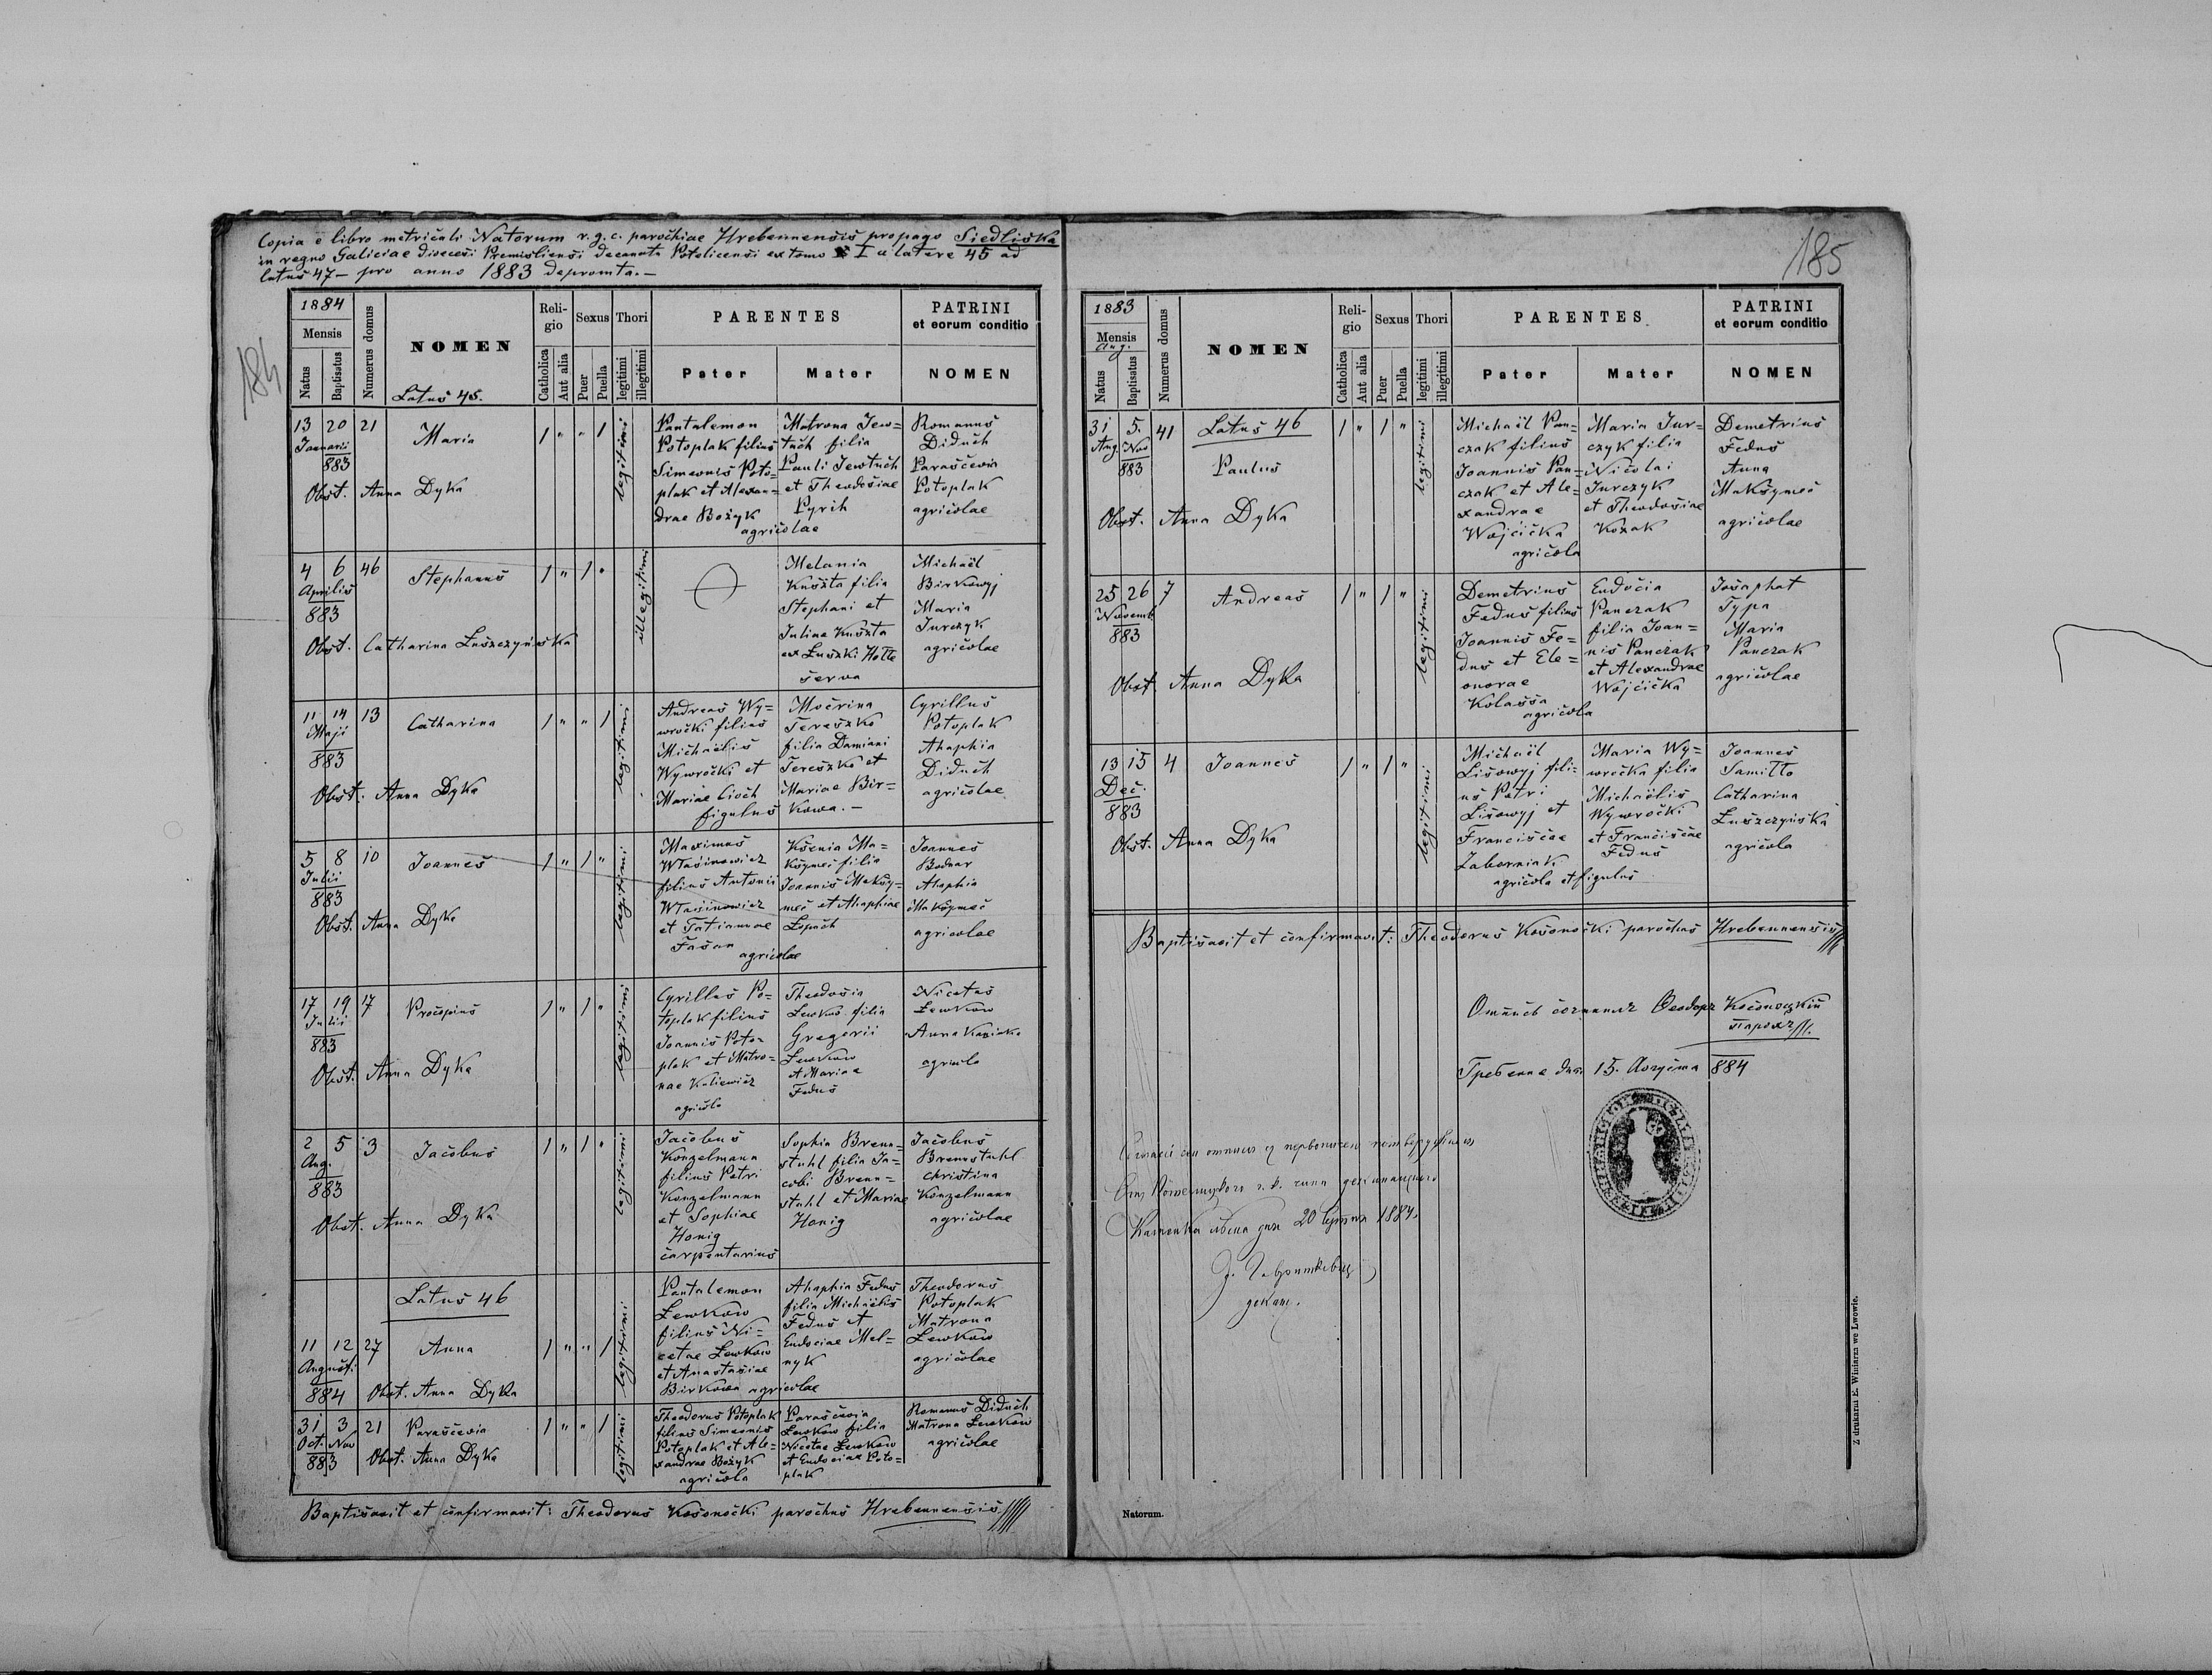 Copia e libro metricali Natorum r. g. c. parochiae Hrebennensis pro pago Siedliska
in regno Galiciae dioecesi Premisliensi decanatu Potylicensi ex tomo I a latere 45 ad
latus 47 – pro anno 1883 depromta. –
184
1884
Mensis
Natus
Baptisatus
Numerus domus
NOMEN
Latus 45.
Religio
Catholica
Aut alia
Sexus
Puer
Puella
Thori
legitimi
illegitimi
PARENTES
Pater
Mater
PATRINI
et eorum conditio
NOMEN
13 20 21
Januarii
883
Maria
1 " " 1
legitimi
Pantalemon
Potoplak filius
Simeonis Poto=
plak et Alexan=
drae Bożyk
agricolae
Matrona Jew=
tuch filia
Pauli Jewtuch
et Theodosiae
Pyrih
Romanus
Diduch
Parascevia
Potoplak
agricolae
Obst. Anna Dyka
4 6 46
Aprilis
883
Stephanus
1 " 1 "
illegitimi
Melania
Kuszta filia
Stephani et
Julinae Kuszta
ex Łuszki
serva
Michaël
Birkowyj
Maria
Jurczyk
agricolae
Obst. Catharina Łuszczyńska
11 14 13
Maji
883
Catharina
1 " " 1
legitimi
Andreas Wy=
wrocki filius
Michaëlis
Wywrocki et
Mariae Cioch
figulus
Mocrina
Tereszko
filia Damiani
Tereszko et
Mariae Bir=
kowa. –
Cyrillus
Potoplak
Ahaphia
Diduch
agricolae
Obst. Anna Dyka
5 8 10
Julii
883
Joannes
1 " 1 "
legitimi
Maximus
Własinowicz
filius Antonii
Własinowicz
et Tatiannae
Fasan
agricolae
Ksenia Ma=
ksymec filia
Joannis Maksy=
mec et Ahaphiae
Łopuch
Joannes
Bodnar
Ahaphia
Maksymec
agricolae
Obst. Anna Dyka
17 19 17
Julii
883
Procopius
1 " 1 "
legitimi
Cyrillus Po=
toplak filius
Joannis Poto=
plak et Matro=
nae Kuliewicz
agricola
Theodosia
Lewkow filia
Gregorii
Lewkow
et Mariae
Fedus
Nicetas
Lewkow
Anna
agricola
Obst. Anna Dyka
2 5 3
Aug.
883
Jacobus
1 " 1 "
legitimi
Jacobus
Konzelmann
filius Petri
Konzelmann
et Sophiae
Honig
carpentarius
Sophia Brenn=
stuhl filia Ja=
cobi Brenn=
stuhl et Mariae
Honig
Jacobus
Brennstuhl
Christina
Konzelmann
agricolae
Obst. Anna Dyka
Latus 46
11 12 27
August.
884
Anna
1 " " 1
legitimi
Pantalemon
Lewkow
filius Ni=
cetae Lewkow
et Anastasiae
Birkowa agricolae
Ahaphia Fedus
filia Michaëlis
Fedus et
Eudociae Mel=
nyk
Theodorus
Potoplak
Matrona
Lewkow
agricolae
Obst. Anna Dyka
31 3 21
Oct. Nov
883
Parascevia
1 " " 1
legitimi
Theodorus Potoplak
filius Simeonis
Potoplak et Ale=
xandrae Bożyk
agricola
Parascevia
Lewkow filia
Nicetae Lewkow
et Eudociae Poto=
plak
Romanus Diduch
Matrona Lewkow
agricolae
Obst. Anna Dyka
Baptisavit et confirmavit: Theodorus Kosonocki parochus Hrebennensis
185
1883
Mensis
Aug.
Natus
Baptisatus
Numerus domus
NOMEN
Religio
Catholica
Aut alia
Sexus
Puer
Puella
Thori
legitimi
illegitimi
PARENTES
Pater
Mater
PATRINI
et eorum conditio
NOMEN
31 5. 41
Aug. Nov
883
Latus 46
Paulus
1 " 1 "
legitimi
Michaël Pan=
czak filius
Joannis Pan=
czak et Ale=
xandrae
Wojcicka
agricola
Maria Jur=
czyk filia
Nicolai
Jurczyk
et Theodosiae
Kozak
Demetrius
Fedus
Anna
Maksymec
agricolae
Obst. Anna Dyka
25 26 7
Novemb
883
Andreas
1 " 1 "
legitimi
Demetrius
Fedus filius
Joannis Fe=
dus et Ele=
onorae
Kolassa
agricola
Eudocia
Panczak
filia Joan=
nis Panczak
et Alexandrae
Wojcicka
Josaphat
Typa
Maria
Panczak
agricolae
Obst. Anna Dyka
13 15 4
Dec.
883
Joannes
1 " 1 "
legitimi
Michaël
Lisowyj fili=
us Petri
Lisowyj et
Franciscae
Zaborniak
agricola et figulus
Maria Wy=
wrocka filia
Michaëlis
Wywrocki
et Franciscae
Fedus
Joannes
Samiłło
Catharina
Łuszczyńska
agricola
Obst. Anna Dyka
Baptisavit et confirmavit: Theodorus Kosonocki parochus Hrebennensis
Ѳеодоръ Косоноцкій
парохъ
Гребенне дня 15. Августа 884
20 1884.
декан.
Natorum.
Z drukarni E. Winiarza we Lwowie.